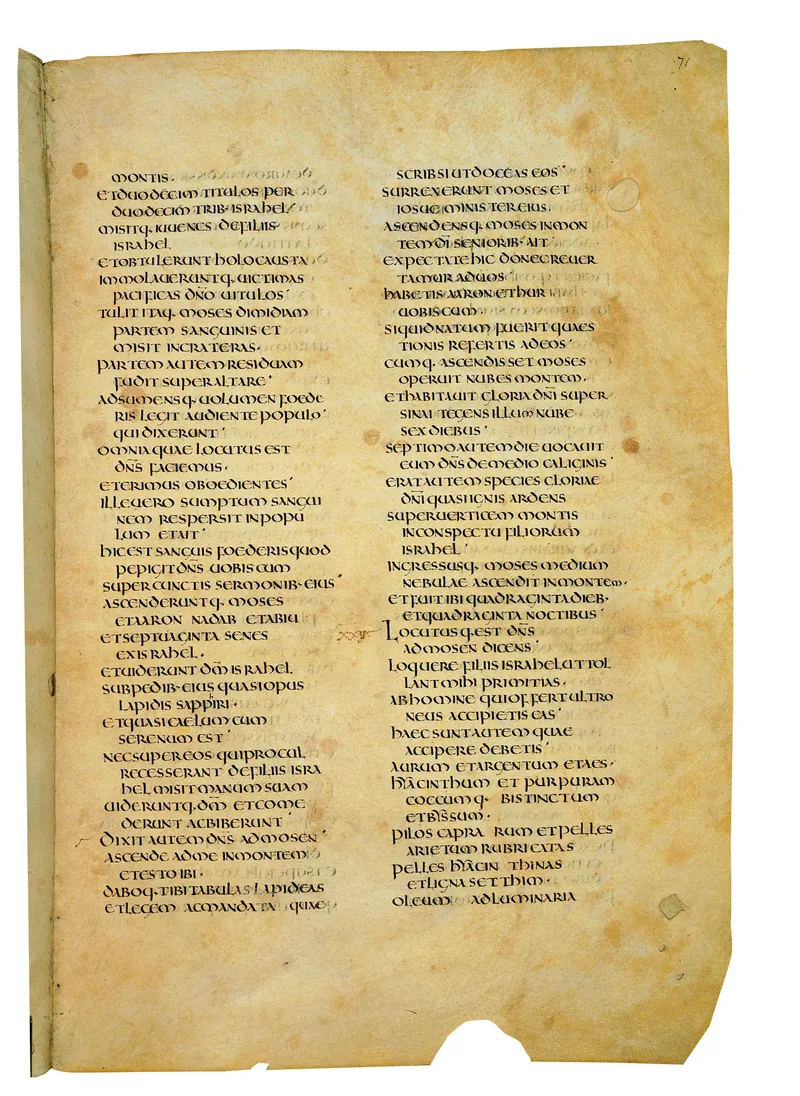 71
MONTIS·
ETDUODECIM TITULOS PER
DUODECIM TRIB· ISRAHEL
MISITQ· IUUENES DEFILIIS
ISRAHEL
ETOBTULERUNT HOLOCAUSTA
IMMOLAUERUNTQ· UICTIMAS
PACIFICAS DÑO UITULOS
TULIT ITAQ· MOSES DIMIDIAM
PARTEM SANGUINIS ET
MISIT INCRATERAS·
PARTEM AUTEM RESIDUAM
FUDIT SUPER ALTARE
ADSUMENSQ· UOLUMEN FOEDE
RIS LEGIT AUDIENTE POPULO
QUI DIXERUNT
OMNIA QUAE LOCUTUS EST
DÑS FACIEMUS·
ETERIMUS OBOEDIENTES
ILLEUERO SUMPTUM SANGUI
NEM RESPERSIT INPOPU
LUM ETAIT
HIC EST SANGUIS FOEDERIS QUOD
PEPIGIT DÑS UOBISCUM
SUPER CUNCTIS SERMONIB· EIUS
ASCENDERUNTQ· MOSES
ETAARON NADAB ETABIU
ETSEPTUAGINTA SENES
EXISRAHEL·
ETUIDERUNT DM̄ ISRAHEL
SUBPEDIB· EIUS QUASIOPUS
LAPIDIS SAPPIRI·
ETQUASI CAELUM CUM
SERENUM EST
NECSUPER EOS QUIPROCUL
RECESSERANT DEFILIIS ISRA
HEL MISIT MANUM SUAM
UIDERUNTQ· DM̄ ETCOME
DERUNT ACBIBERUNT
DIXIT AUTEM DÑS ADMOSEN
ASCENDE ADME INMONTEM
ETESTO IBI·
DABOQ· TIBI TABULAS LAPIDEAS
ETLEGEM ACMANDATA QUAE
SCRIBSI UTDOCEAS EOS
SURREXERUNT MOSES ET
IOSUE MINISTER EIUS·
ASCENDENSQ· MOSES INMON
TEM DĪ SENIORIB· AIT
EXPECTATE HIC DONECREUER
TAMUR ADUOS
HABETIS AARON ETHUR
UOBISCUM·
SIQUID NATUM FUERIT QUAES
TIONIS REFERTIS ADEOS
CUMQ· ASCENDISSET MOSES
OPERUIT NUBES MONTEM·
ETHABITAUIT GLORIA DÑI SUPER
SINAI TEGENS ILLUM NUBE
SEX DIEBUS
SEPTIMO AUTEM DIE UOCAUIT
EUM DÑS DEMEDIO CALIGINIS
ERAT AUTEM SPECIES GLORIAE
DÑI QUASI IGNIS ARDENS
SUPERUERTICEM MONTIS
INCONSPECTU FILIORUM
ISRAHEL
INGRESSUSQ· MOSES MEDIUM
NEBULAE ASCENDIT INMONTEM·
ETFUIT IBI QUADRAGINTA DIEB·
ETQUADRAGINTA NOCTIBUS
XXV LOCUTUSQ· EST DÑS
ADMOSEN DICENS
LOQUERE FILIIS ISRAHEL UT TOL
LANT MIHI PRIMITIAS·
ABHOMINE QUIOFFERT ULTRO
NEUS ACCIPIETIS EAS
HAEC SUNT AUTEM QUAE
ACCIPERE DEBETIS
AURUM ETARGENTUM ETAES·
HYACINTHUM ET PURPURAM
COCCUMQ· BISTINCTUM
ETBYSSUM·
PILOS CAPRARUM ETPELLES
ARIETUM RUBRICATAS
PELLES HYACINTHINAS
ETLIGNA SETTHIM·
OLEUM ADLUMINARIA